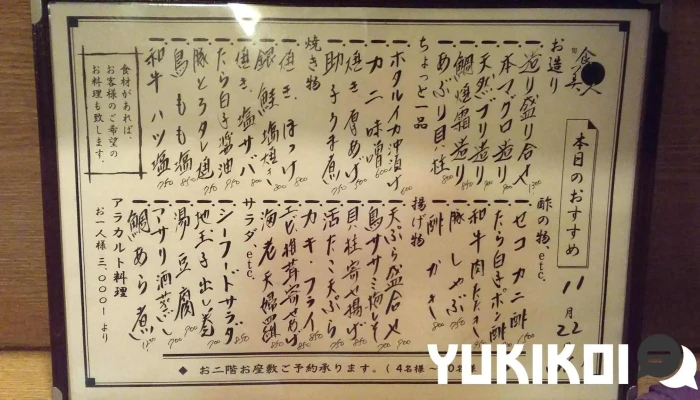 本日のおすすめ
11月22
お造り
造り盛り合せ
本マグロ造り
天然ブリ造り
鯛焼霜造り
あぶり貝柱
ちょっと一品
ホタルイカ沖漬け
カニ味噌
焼き厚あげ
助子うま煮
焼き物
焼き ほっけ
銀鮭塩焼き
焼き塩サバ
たら白子醤油
豚とろタレ焼
鳥もも塩
和牛ハツ塩
食材があれば、
お客様のご希望の
お料理も致します。
酢の物、etc.
セコカニ酢
たら白子ポン酢
和牛肉たたき
豚しゃぶ
酢がき
揚げ物
天ぷら盛合せ
鳥ササミ梅しそ
貝柱寄せ揚げ
活たこ天ぷら
カキ・フライ
エビ椎茸寄せあげ
海老天婦羅
サラダ、etc.
シーフードサラダ
地玉子出し巻
湯豆腐
アサリ酒蒸し
鯛あら煮
アラカルト料理
お一人様 三、〇〇〇ー より
◆ お二階お座敷ご予約承ります。(4名様~
YUKIKOI